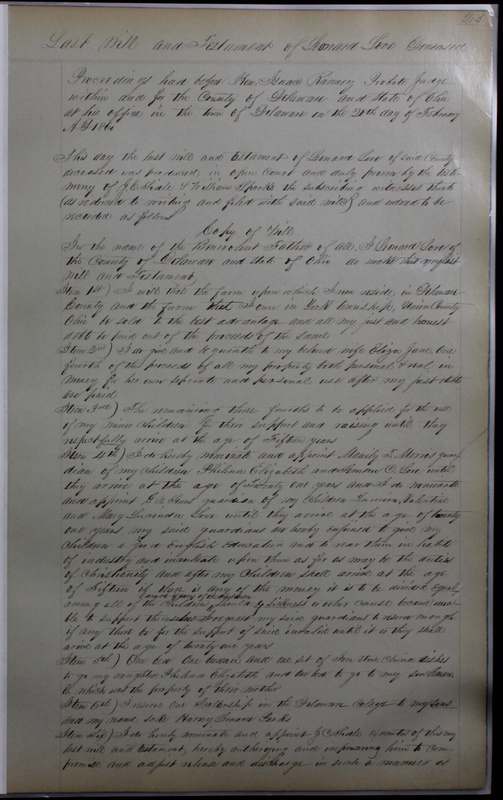 Last Will and Testament of Leonard Love Deceased
Proceedings had before Hon. Isaac Ranney Probate Judge
within and for the County of Delaware and State of Ohio
at his office in the town of Delaware on the 20th day of February
A.D. 1860
This day the last will and testament of Leonard Love of said County
deceased was produced in open Court and duly proven by the testi-
mony of & William Sparks the subscribing witnesses which
as reduced to writing and filed with said will and ordered to be
recorded as follows
Copy of Will
In the name of the Benevolent Father of all, I Leonard Love of
the County of Delaware and State of Ohio do make this my last
will and Testament,
Item 1st) I will that the farm upon which I now reside, in Delaware
County and the farm that I own in York township, Union County
Ohio be sold to the best advantage and all my just and honest
debts be paid out of the proceeds of the same
Item 2nd) I do give and bequeath to my beloved wife Eliza Jane, One
fourth of the proceeds of all my property both personal & real, in
money for her own separate and personal use after my just debts
are paid
Item 3rd) The remaining three fourths to be applied for the use
of my minor children for their support and raising until they
respectfully arrive at the age of Fifteen years
Item 4th) I do hereby nominate and appoint guar-
dian of my children Elizabeth and Love until
they arrive at the age of Twenty one years and I do nominate
and appoint guardian of my children
and Mary Love until they arrive at the age of twenty
one years my said guardians are hereby enjoined to give my
children a good English Education and to rear them in habits
of industry and inculcate upon them as far as may be the duties
of Christianity and after my children shall arrive at the age
of Fifteen if there is any of the money it is to be divided equal
among all of the children should any of my children by sickness or other cause become una-
ble to support themselves I request my said guardians to reserve enough
if any there be for the support of said invalid until he or they shall
arive at the age of twenty one years
Item 5th) One bed One bureau and one set of Iron Stone China dishes
to go my daughter Elizabeth and one bed to go to my son
which was the property of their mother
Item 6th) I one Scholarship in the Delaware College to my sons
and my name sake Harvey Leonard
Item I do hereby nominate and appoint executor of this my
last will and testament, hereby authorizing and impowering him to com-
promise and adjust release and discharge in such a manner as